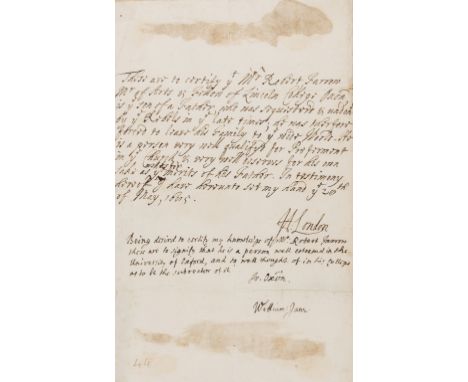 These are to certify yt Mr Robert Farrow
Mr of Arts & fellow of Lincoln College Oxon
is ye son of a father, who was sequestred & undon
by ye Rebells in ye late times, & was therefore
to leave his family to ye wide World. He
is a person very well qualifyd for Preferment
in ye church & very well deserves for his own
sake as ye merits of his father. In testimony
hereof I have hereunto set my hand ye 20th
of May, 1685.
H London
Being desird to certify my knowledge of Mr Robert Farrow
these are to signify that he is a person well esteemed in the
University of Oxford, and so well thought of in his College
as to be the subrector of it.
Jo. Oxon.
William Jane